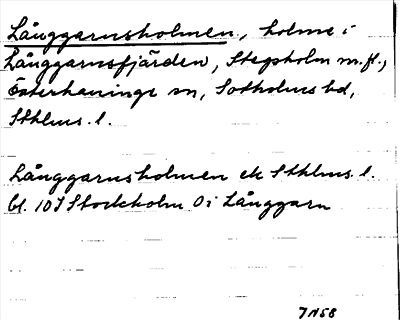 Långgarnsholmen, holme i
Långgarnsfjärden, Stegsholm m.fl.,
Österhaninge sn, Sotholms hd,
Sthlms. l.
Långgarnsholmen ek Sthlms. l.
bl. 10J Stockholm O i Långgarn